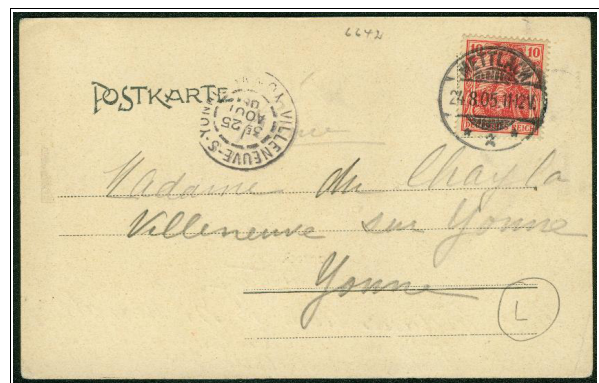 6642
POSTKARTE
10 10
METTLACH
24.8.05.11-12V.
* 2 *
VILLENEUVE-S-YONNE
25
AOUT
Madame du Chayla
Villeneuve sur Yonne
Yonne
L